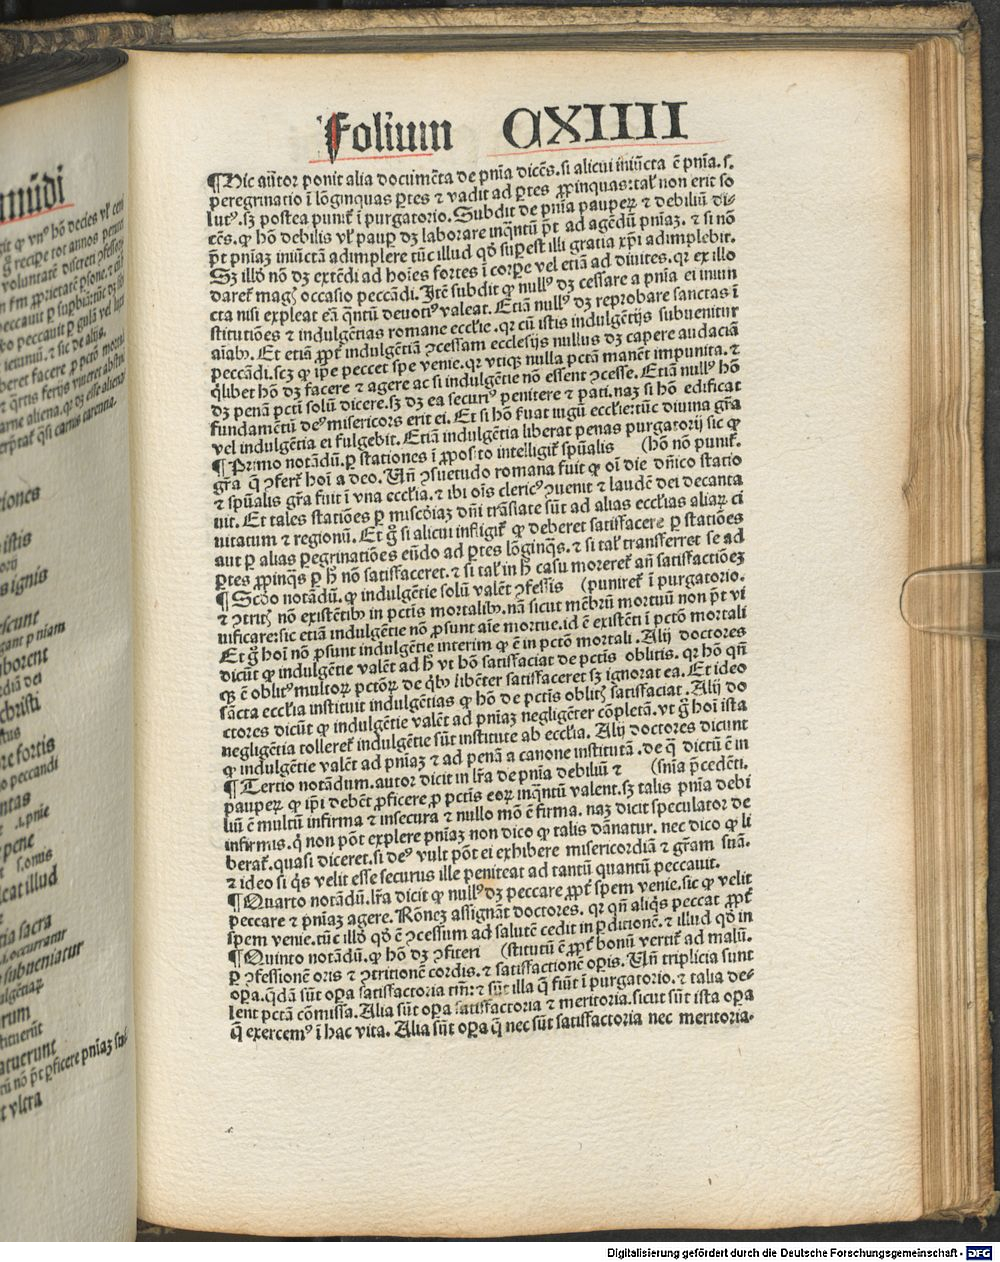 Folium CXIIII
¶Hic auctor ponit alia documēta de pnīa dicēs. si alicui iniūcta ē pnīa. s.
peregrinatio ī lōginquas ꝑtes ⁊ vadit ad ꝑtes ꝓpinquas: talꝭ non erit so
lutꝰ. sꝫ postea punit̃ ī purgatorio. Subdit de pnīa pauperꝝ ⁊ debiliū di-
cēs. ꝙ hō debilis vl̕ paup̲ dꝫ laborare inq̄ntū pōt ad agēdū pnīaꝫ. ⁊ si nō
pōt pnīaꝫ iniūctā adimplere tūc illud qd̕ sup̲est illi gratia xp̄i adimplebit.
Sꝫ illd̕ nō dꝫ extēdi ad hoīes fortes ī corꝑe vel etiā ad diuites. qꝛ ex illo
daret̃ magꝭ occasio peccādi. Itē subdit ꝙ nullꝰ dꝫ cessare a pnīa ei iniun
cta nisi expleat eā q̄ntū deuotiꝰ valeat. Etiā nullꝰ dꝫ reprobare sanctas ī
stitutiōes ⁊ indulgētias romane eccl̕ie. qꝛ cū istis indulgētijs subuenitur
aīabꝫ. Et etiā ꝓpt̃ indulgētiā ꝯcessam ecclesijs nullus dꝫ capere audaciā
peccādi. scꝫ ꝙ ip̄e peccet spe venie. qꝛ vtiqꝫ nulla pctā manēt impunita. ⁊
q̄libet hō dꝫ facere ⁊ agere ac si indulgētie nō essent ꝯcesse. Etiā nullꝰ hō
dꝫ penā pcti solū dicere. sꝫ dꝫ ea securiꝰ penitere ⁊ pati. naꝫ si hō edificat
fundamētū deꝰ misericors erit ei. Et si hō ẜuat iugū eccl̕ie: tūc diuina gr̄a
vel indulgētia ei fulgebit. Etiā indulgētia liberat penas purgatorij sic ꝙ
¶Primo notādū. ꝑ stationes ī ꝓposito intelligit̃ spūalis (hō nō punit̃.
gr̄a q̄ ꝯfert̃ hoī a deo. Vn̄ ꝯsuetudo romana fuit ꝙ oī die dn̄ico statio
⁊ spūalis gr̄a fuit ī vna eccl̕ia. ⁊ ibi oīs clericꝰ ꝯuenit ⁊ laudē dei decanta
uit. Et tales statiōes ꝑ mīcōiaꝫ dn̄i trāslate sūt ad alias eccl̕ias aliaꝝ ci
uitatum ⁊ regionū. Et g̊ si alicui infligit̃ ꝙ deberet satisfacere ꝑ statiōes
aut ꝑ alias ꝑegrinatiōes eūdo ad ꝑtes lōginq̄s. ⁊ si talꝭ transferret se ad
ꝑtes ꝓpinq̄s ꝑ h̕ nō satisfaceret. ⁊ si talꝭ in h̕ casu moreret̃ añ satisfactiōeꝫ
¶Scd̕o notādū. ꝙ indulgētie solū valēt ꝯfessis (puniret̃ ī purgatorio.
⁊ ꝯtritꝭ nō existētibꝫ in pctīs mortalibꝫ. nā sicut mēbrū mortuū non pōt vi
uificare: sic etiā indulgētie nō ꝓsunt aīe mortue. id ē existēti ī pctō mortali
Et g̊ hoī nō ꝓsunt indulgētie interim ꝙ ē in pctō mortali. Alij doctores
dicūt ꝙ indulgētie valēt ad h̕ vt hō satisfaciat de pctīs oblitis. qꝛ hō qn̄
qꝫ ē oblitꝰ multoꝝ pctōꝝ de qͥbꝰ libēter satisfaceret sꝫ ignorat ea. Et ideo
sācta eccl̕ia instituit indulgētias ꝙ hō de pctīs oblitꝭ satisfaciat. Alij do
ctores dicūt ꝙ indulgētie valēt ad pnīaꝫ negligēter cōpletā. vt g̊ hoī ista
negligētia tolleret̃ indulgētie sūt institute ab eccl̕ia. Alij doctores dicunt
ꝙ indulgētie valēt ad pnīaꝫ ⁊ ad penā a canone institutā. de q̄ dictū ē in
¶Tertio notādum. autor dicit in lr̄a de pnīa debiliū ⁊ (snīa p̄cedēti.
pauperꝝ ꝙ ip̄i debēt ꝓficere ꝓ pctīs eoꝝ inq̄ntū valent. sꝫ talis pnīa debi
liū ē multū infirma ⁊ insecura ⁊ nullo mō ē firma. naꝫ dicit speculator de
infirmis. qͥ non pōt explere pnīaꝫ non dico ꝙ talis dānatur. nec dico ꝙ li
berat̃. quasi diceret. si deꝰ vult pōt ei exhibere misericordiā ⁊ gr̄am suā.
⁊ ideo si qͥs velit esse securus ille peniteat ad tantū quantū peccauit.
¶Quarto notādū. lr̄a dicit ꝙ nullꝰ dꝫ peccare ꝓpt̃ spem venie. sic ꝙ velit
peccare ⁊ pnīaꝫ agere. Rōneꝫ assignāt doctores. qꝛ qn̄ aliqͥs peccat ꝓpt̃
spem venie. tūc illd̕ qd̕ ē ꝯcessum ad salutē cedit in ꝑditionē. ⁊ illud qd̕ in
¶Quinto notādū. ꝙ hō dꝫ ꝯfiteri (stitutū ē ꝓpt̃ bonū vertit̃ ad malū.
ꝑ ꝯfessionē oris ⁊ ꝯtritionē cordis. ⁊ satisfactionē oꝑis. Vn̄ triplicia sunt
oꝑa. q̄dā sūt oꝑa satisfactoria tm̄: ⁊ sūt illa q̄ fiūt ī purgatorio. ⁊ talia de-
lent pctā cōmissa. Alia sūt oꝑa satisfactoria ⁊ meritoria. sicut sūt ista oꝑa
q̄ exercemꝰ ī hac vita. Alia sūt oꝑa q̄ nec sūt satisfactoria nec meritoria.
Digitalisierung gefördert durch die Deutsche Forschungsgemeinschaft - DFG